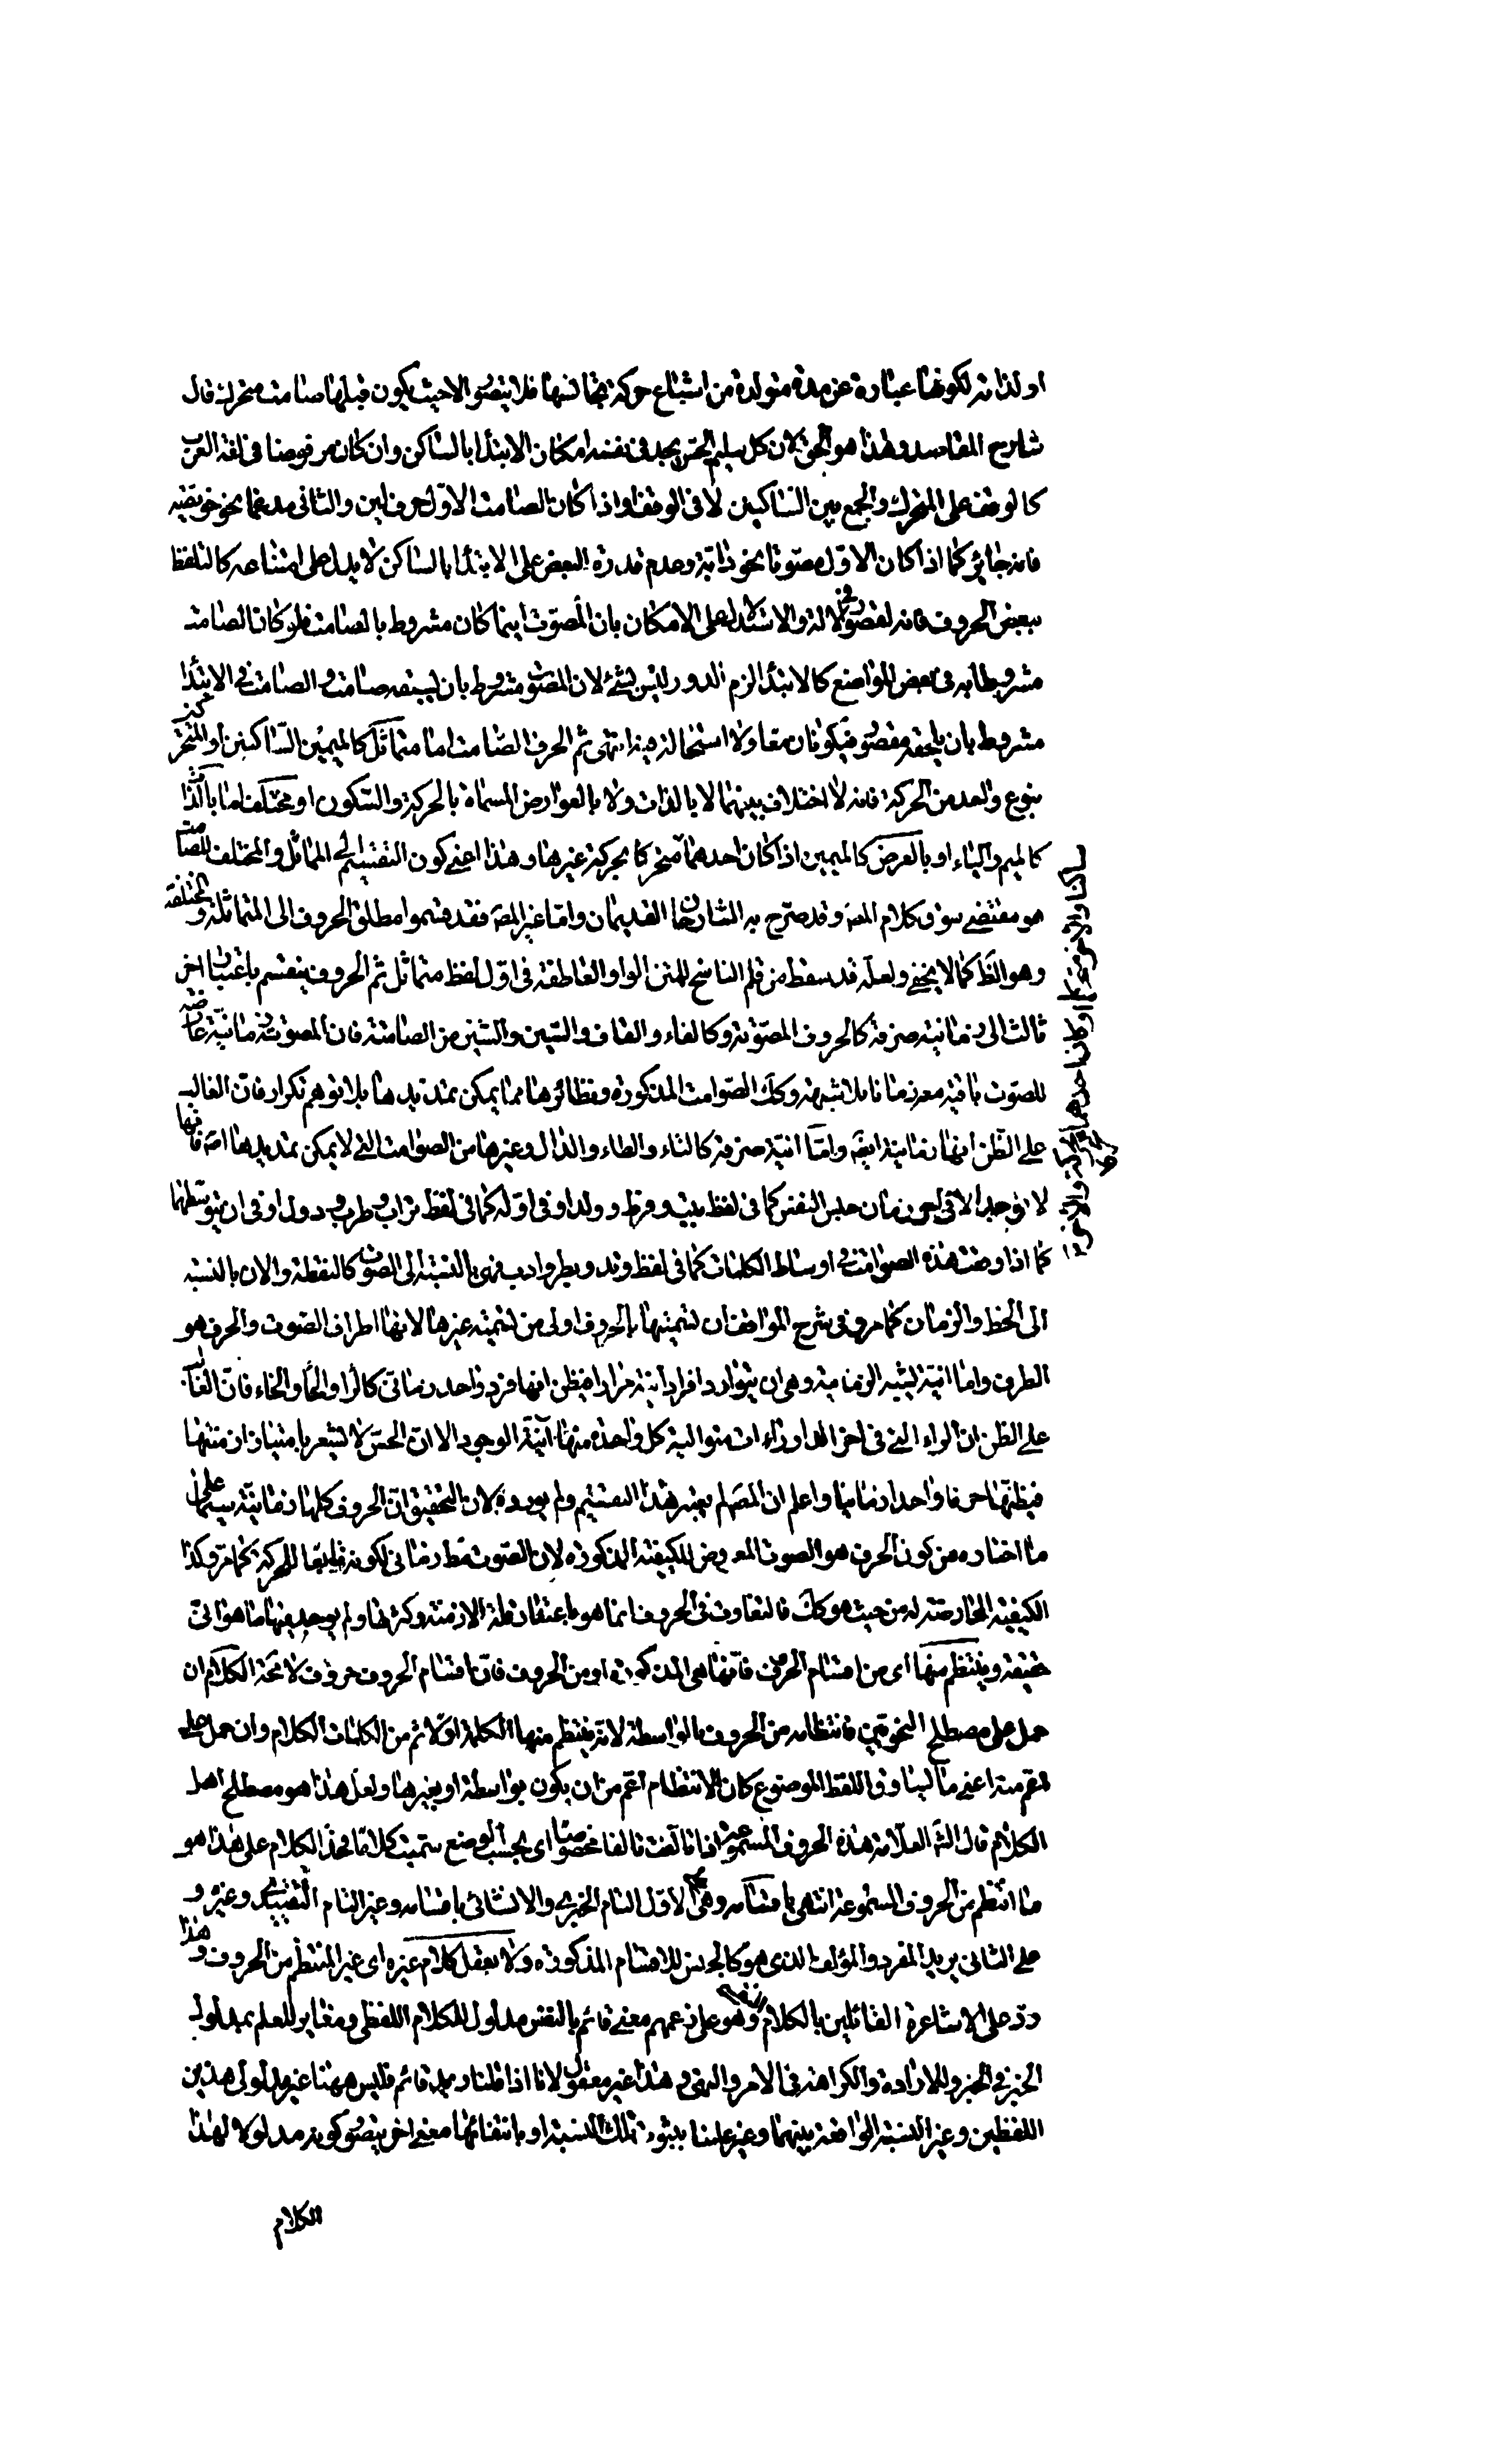 او لذاته لكونها عبارة عن مدة متولدة من اشباع حركة تجانسها فلا يتصور الا حيث يكون قبلها صامت متحرك قال
شارح المقاصد وهذا هو الحق لان كل سليم الحس يجد في نفسه امكان الابتدا بالساكن وان كان مرفوضا في لغة العرب
كالوقف على المتحرك والجمع بين الساكنين لا في الوقف او اذا كان الصامت الاول حرف لين والثاني مدغما نحو خويصّة
فانه جائز كما اذا كان الاول مصوتا نحو دابة وعدم قدرة البعض على الابتدا بالساكن لا يدل على امتناعه كالتلفظ
ببعض الحروف فانه لقصور في الالة والاستدلال على الامكان بان المصوت اينما كان مشروط بالصامت فلو كان الصامت
مشروطا به في بعض المواضع كالابتدا لزم الدور ليس بشئ لان المصوت مشروط بان يسبقه صامت والصامت في الابتدا
مشروط بان يلحقه مصوت فيكونان معا ولا استحالة فيه انتهى ثم الحرف الصامت اما متماثل كالميمين الساكنين او المتحركين
بنوع واحد من الحركة فانه لا اختلاف بينهما لا بالذات ولا بالعوارض المسماة بالحركة والسكون او مختلف اما بالذات
كالميم والياء او بالعرض كالميمين اذا كان احدهما متحركا بحركة غيرها وهذا اعنى كون التقسيم الى المماثل والمختلف للصامت
هو مقتضى سوق كلام المصـ وقد صرح به الشارحان القديمان واما غير المصـ فقد قسموا مطلق الحروف الى المتماثلة والمختلفة
وهو الظ كما لا يخفى ولعله قد سقط من قلم الناسخ للمتن الواو العاطفة في اول لفظ متماثل ثم الحروف ينقسم باعتبار اخر
ثالث الى زمانية صرفة كالحروف المصوتة وكالفاء والقاف والسين والشين من الصامتة فان المصوتة زمانية عارضة
للصوت باقية معه زمانا بلا شبهة وكك الصوامت المذكورة ونظائرها مما يمكن تمديدها بلا توهم تكرار فان الغالب
على الظن انها زمانية ايضـ واما انية صرفة كالتاء والطاء والدال وغيرها من الصوامت التي لا يمكن تمديدها اصـ فانها
لا توجد الا في اخر زمان حبس النفس كما في لفظ بيت وفرط وولد او في اوله كما في لفظ تراب وطرب ودول او في ان يتوسطهما
كما اذا وقعت هذه الصوامت في اوساط الكلمات كما في لفظ وتد وبطر وادب فهي بالنسبة الى الصوت كالنقطة والان بالنسبة
الى الخط والزمان كما مر وفي شرح المواقف ان تسميتها بالحروف اولى من تسمية غيرها لانها اطراف الصوت والحرف هو
الطرف واما انية تشبه الزمانية وهي ان يتوارد افراد انية مرارا فيظن انها فرد واحد زماني كالراء والحاء والخاء فان الغالب
على الظن ان الراء التي في اخر الدار راءات متوالية كل واحدة منها آنية الوجود الا ان الحس لا يشعر بامتياز ازمنتها
فيظنها حرفا واحدا زمانيا واعلم ان المصـ لم يعتبر هذا التقسيم ولم يورده لان التحقيق ان الحروف كلها زمانية سيما على
ما اختاره من كون الحرف هو الصوت المعروض للكيفية المذكورة لان الصوت قط زماني لكونه تابعا للحركة كما مر وكذا
الكيفية العارضة له من حيث هو كك فالتفاوت في الحروف انما هو باعتبار قلة الازمنة وكثرتها ولم يوجد فيها ما هو اني
حقيقة وينتظم منها اى من اقسام الحرف فانها هي المذكورة او من الحروف فان اقسام الحروف حروف لا محة الكلام ان
حمل على مصطلح النحويين فانتظامه من الحروف بالواسطة لانه ينتظم منها الكلمة اولا ثم من الكلمات الكلام وان حمل على
اعم منه اعنى ما يساوق اللفظ الموضوع كان الانتظام اعم من ان يكون بواسطة او بغيرها ولعل هذا هو مصطلح اهل
الكلام قال الشـ العلامة هذه الحروف المسموعة اذا تالفت تالفا مخصوصا اى بحسب الوضع سميت كلاما فحد الكلام على هذا هو
ما انتظم من الحروف المسموعة انتهى باقسامه وهي على الاول التام الخبري والانشائي باقسامه وغير التام التقييدي وغيره و
على الثاني يريد المفرد والمؤلف الذي هو كالجنس للاقسام المذكورة ولا يعقل كلام غيره اى غير المنتظم من الحروف وهذا
رد على الاشاعرة القائلين بالكلام النفسي وهو على زعمهم معنى قائم بالنفس مدلول للكلام اللفظي ومغاير للعلم بمدلول
الخبر في الخبر وللارادة والكراهة في الامر والنهي وهذا غير معقول لانا اذا قلنا زيد قائم فليس ههنا غير مدلولى هذين
اللفظين وغير النسبة الواقعة بينهما وغير علمنا بثبوت تلك النسبة او بانتفائها معنى اخر يتصور كونه مدلولا لهذا
الكلام